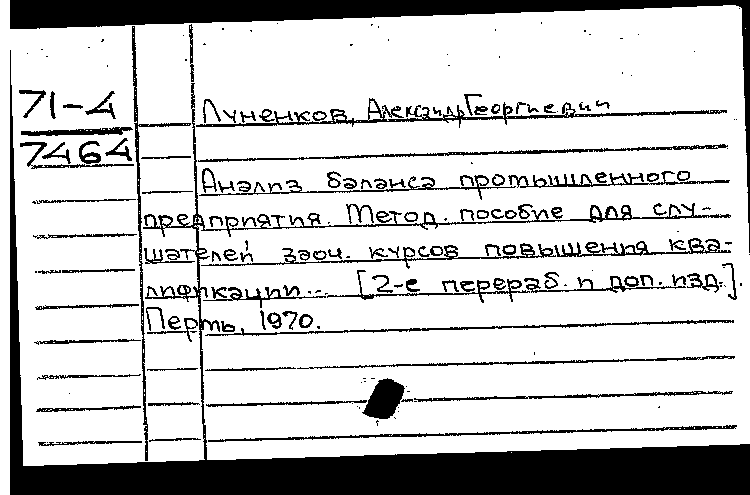 71-4
7464
Луненков, Александр Георгиевич
Анализ баланса промышленного
предприятия. Метод. пособие для слу-
шателей заоч. курсов повышения ква-
лификации... [2-е перераб. и доп. изд.].
Пермь, 1970.